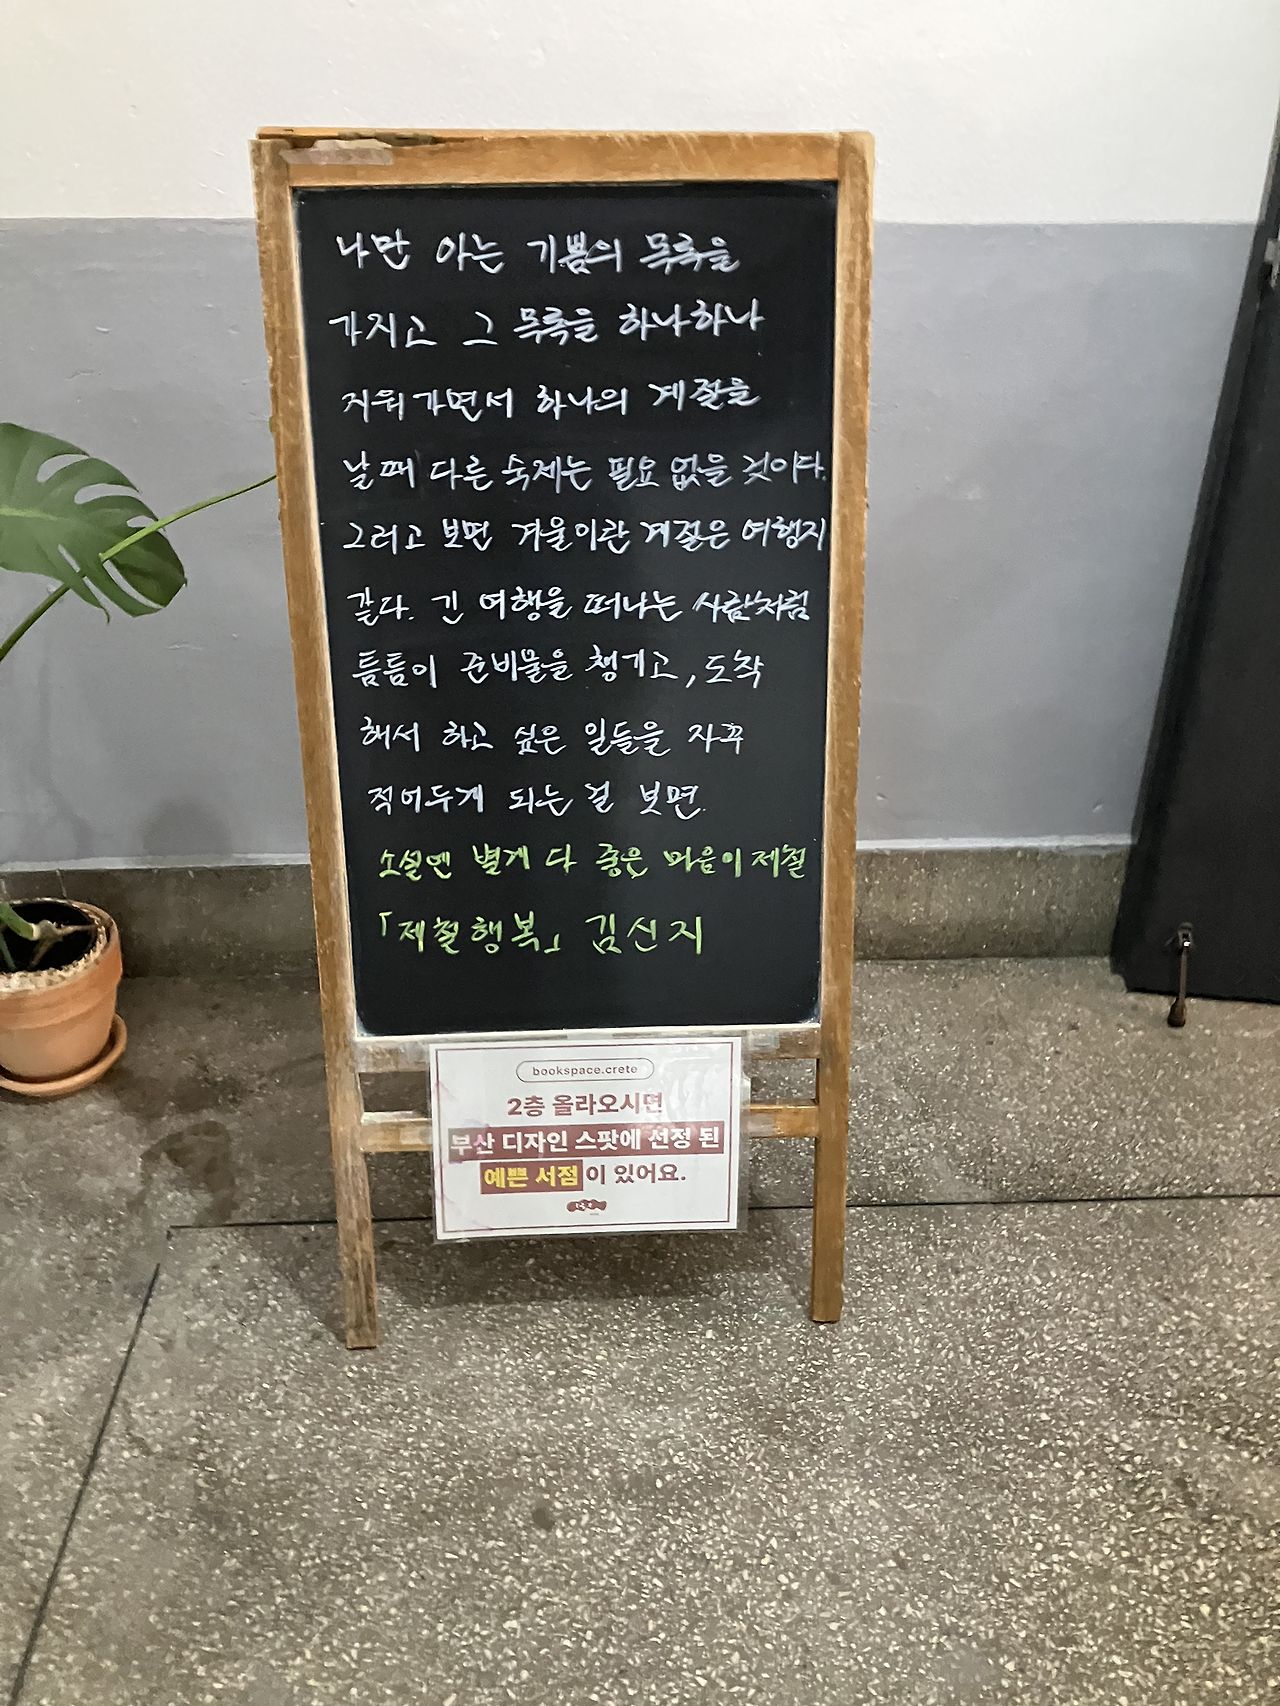 나만 아는 기쁨의 목록을
가지고 그 목록을 하나하나
지워가면서 하나의 계절을
날 때 다른 숙제는 필요 없을 것이다.
그러고 보면 겨울이란 계절은 여행지
같다. 긴 여행을 떠나는 사람처럼
틈틈이 준비물을 챙기고, 도착
해서 하고 싶은 일들을 자꾸
적어두게 되는 걸 보면.
소설엔 별게 다 좋은 마음이 제철
「제철 행복」 김신지
bookspace.crete
2층 올라오시면
부산 디자인 스팟에 선정 된
예쁜 서점이 있어요.